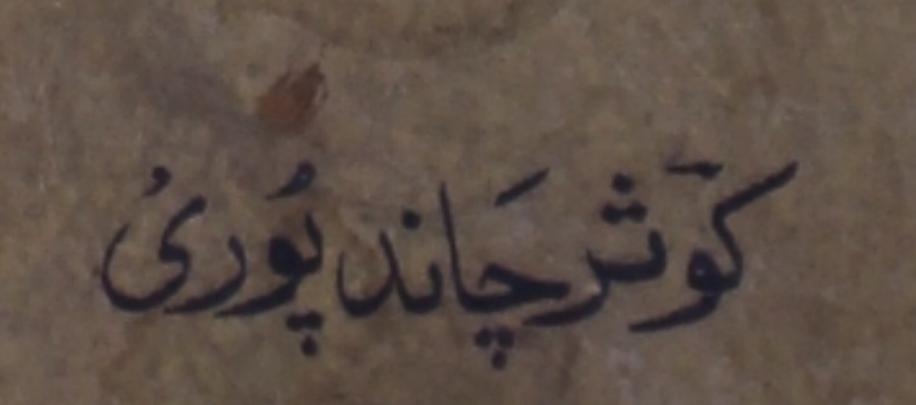 کَوثر چَاند پُوریُ